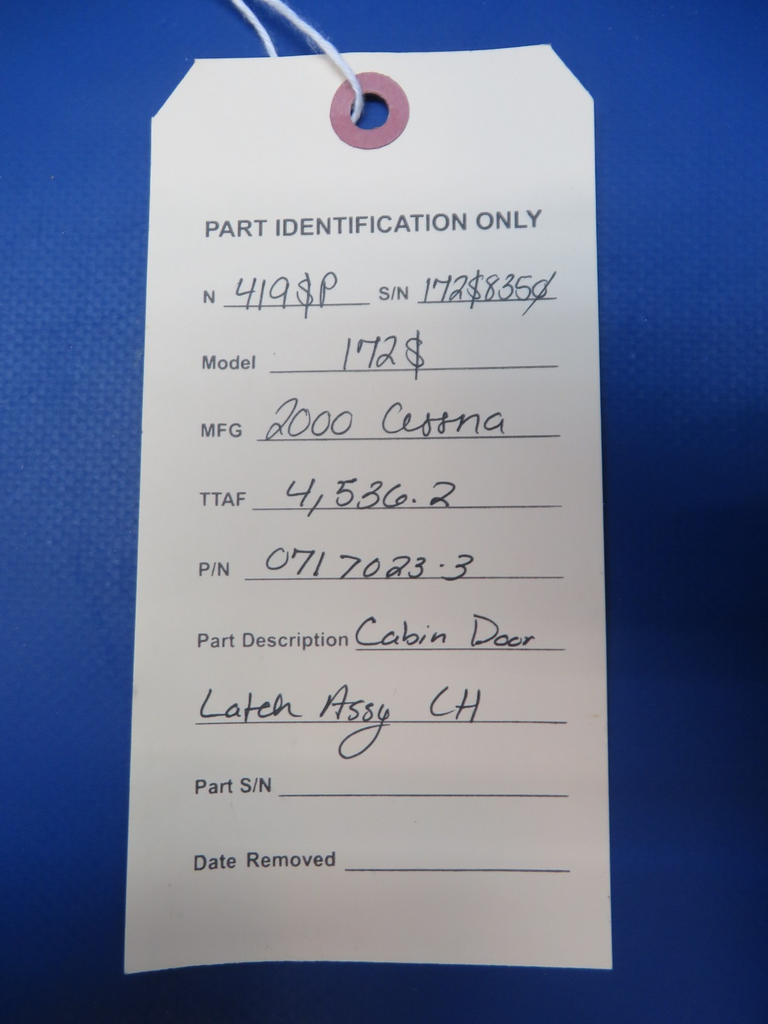 PART IDENTIFICATION ONLY
N 419$P S/N 172$8350
Model 172$
MFG 2000 Cessna
TTAF 4,536.2
P/N 0717023-3
Part Description Cabin Door
Latch Assy LH
Part S/N
Date Removed